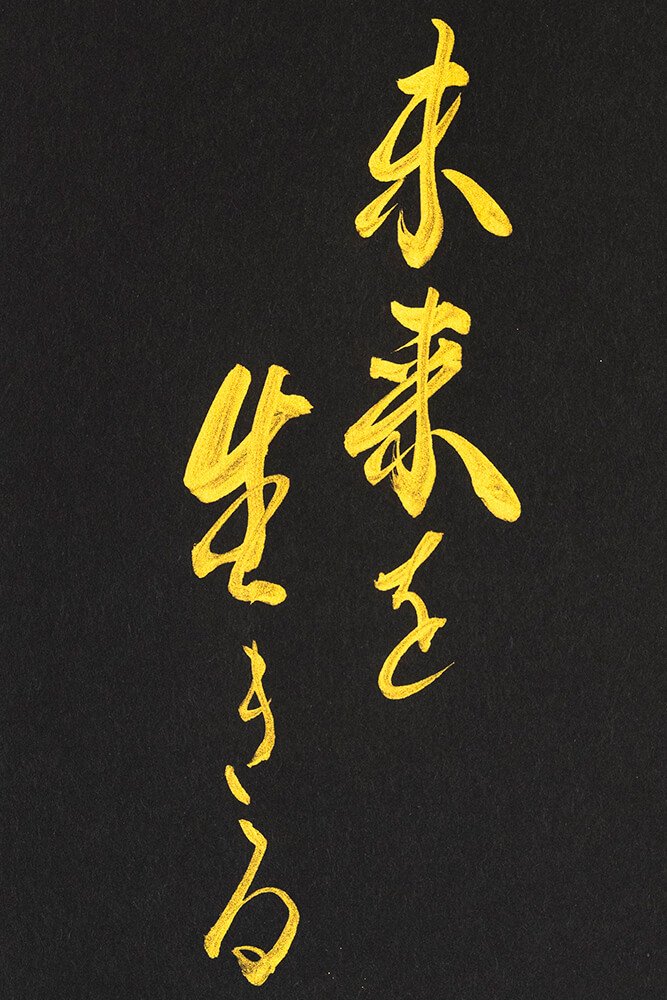 未来を
生きる